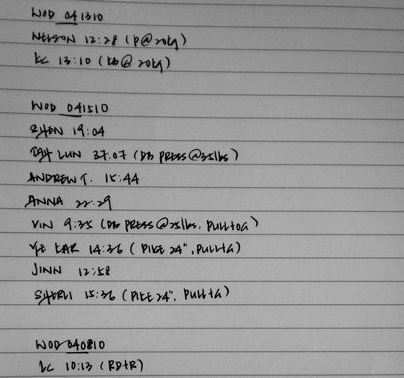 WOD 041310
NELSON 12:28 (P@20kg)
KC 13:10 (KB@20kg)
WOD 041510
SHEN 19:04
LUN 37:07 (DB PRESS@35lbs)
ANDREW T. 15:44
ANNA 22:29
VIN 9:35 (DB PRESS@25lbs,
YE KAR 14:36 (PIKE 24",
JINN 12:58
SHERLI 15:36 (PIKE 24",
WOD 040810
KC 10:13 (RD+R)